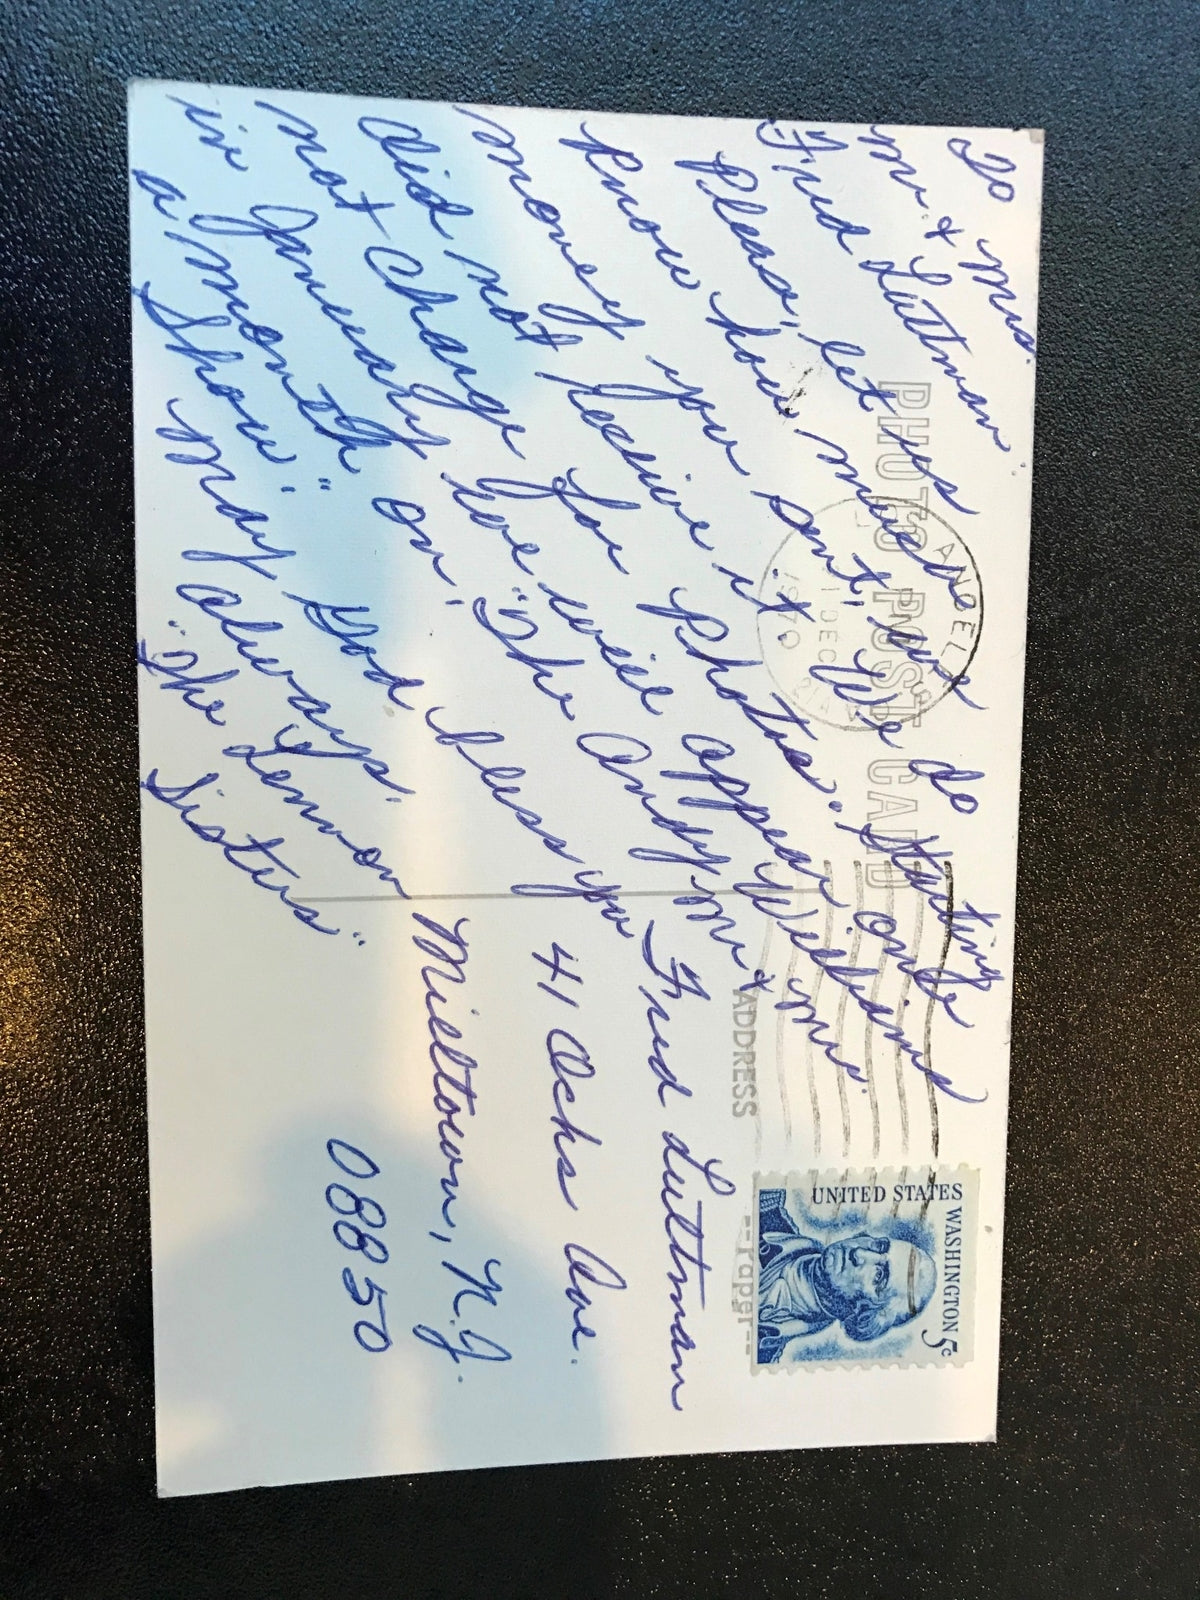 To
Mr. & Mrs.
Fred Luttman:
Please, let us
know how much
money you sent, we
did not receive it. We do
not charge for photos. Starting
in January we will appear once
a month on "The Andy Williams
Show."
May God bless you
always.
"The Lennon
Sisters"
PHOTO POST CARD
ANGELE
1 DEC
1970
ADDRESS
UNITED STATES
WASHINGTON 5c
Mr. & Mrs.
Fred Luttman
41 Ochs Ave.
Milltown, N.J.
08850